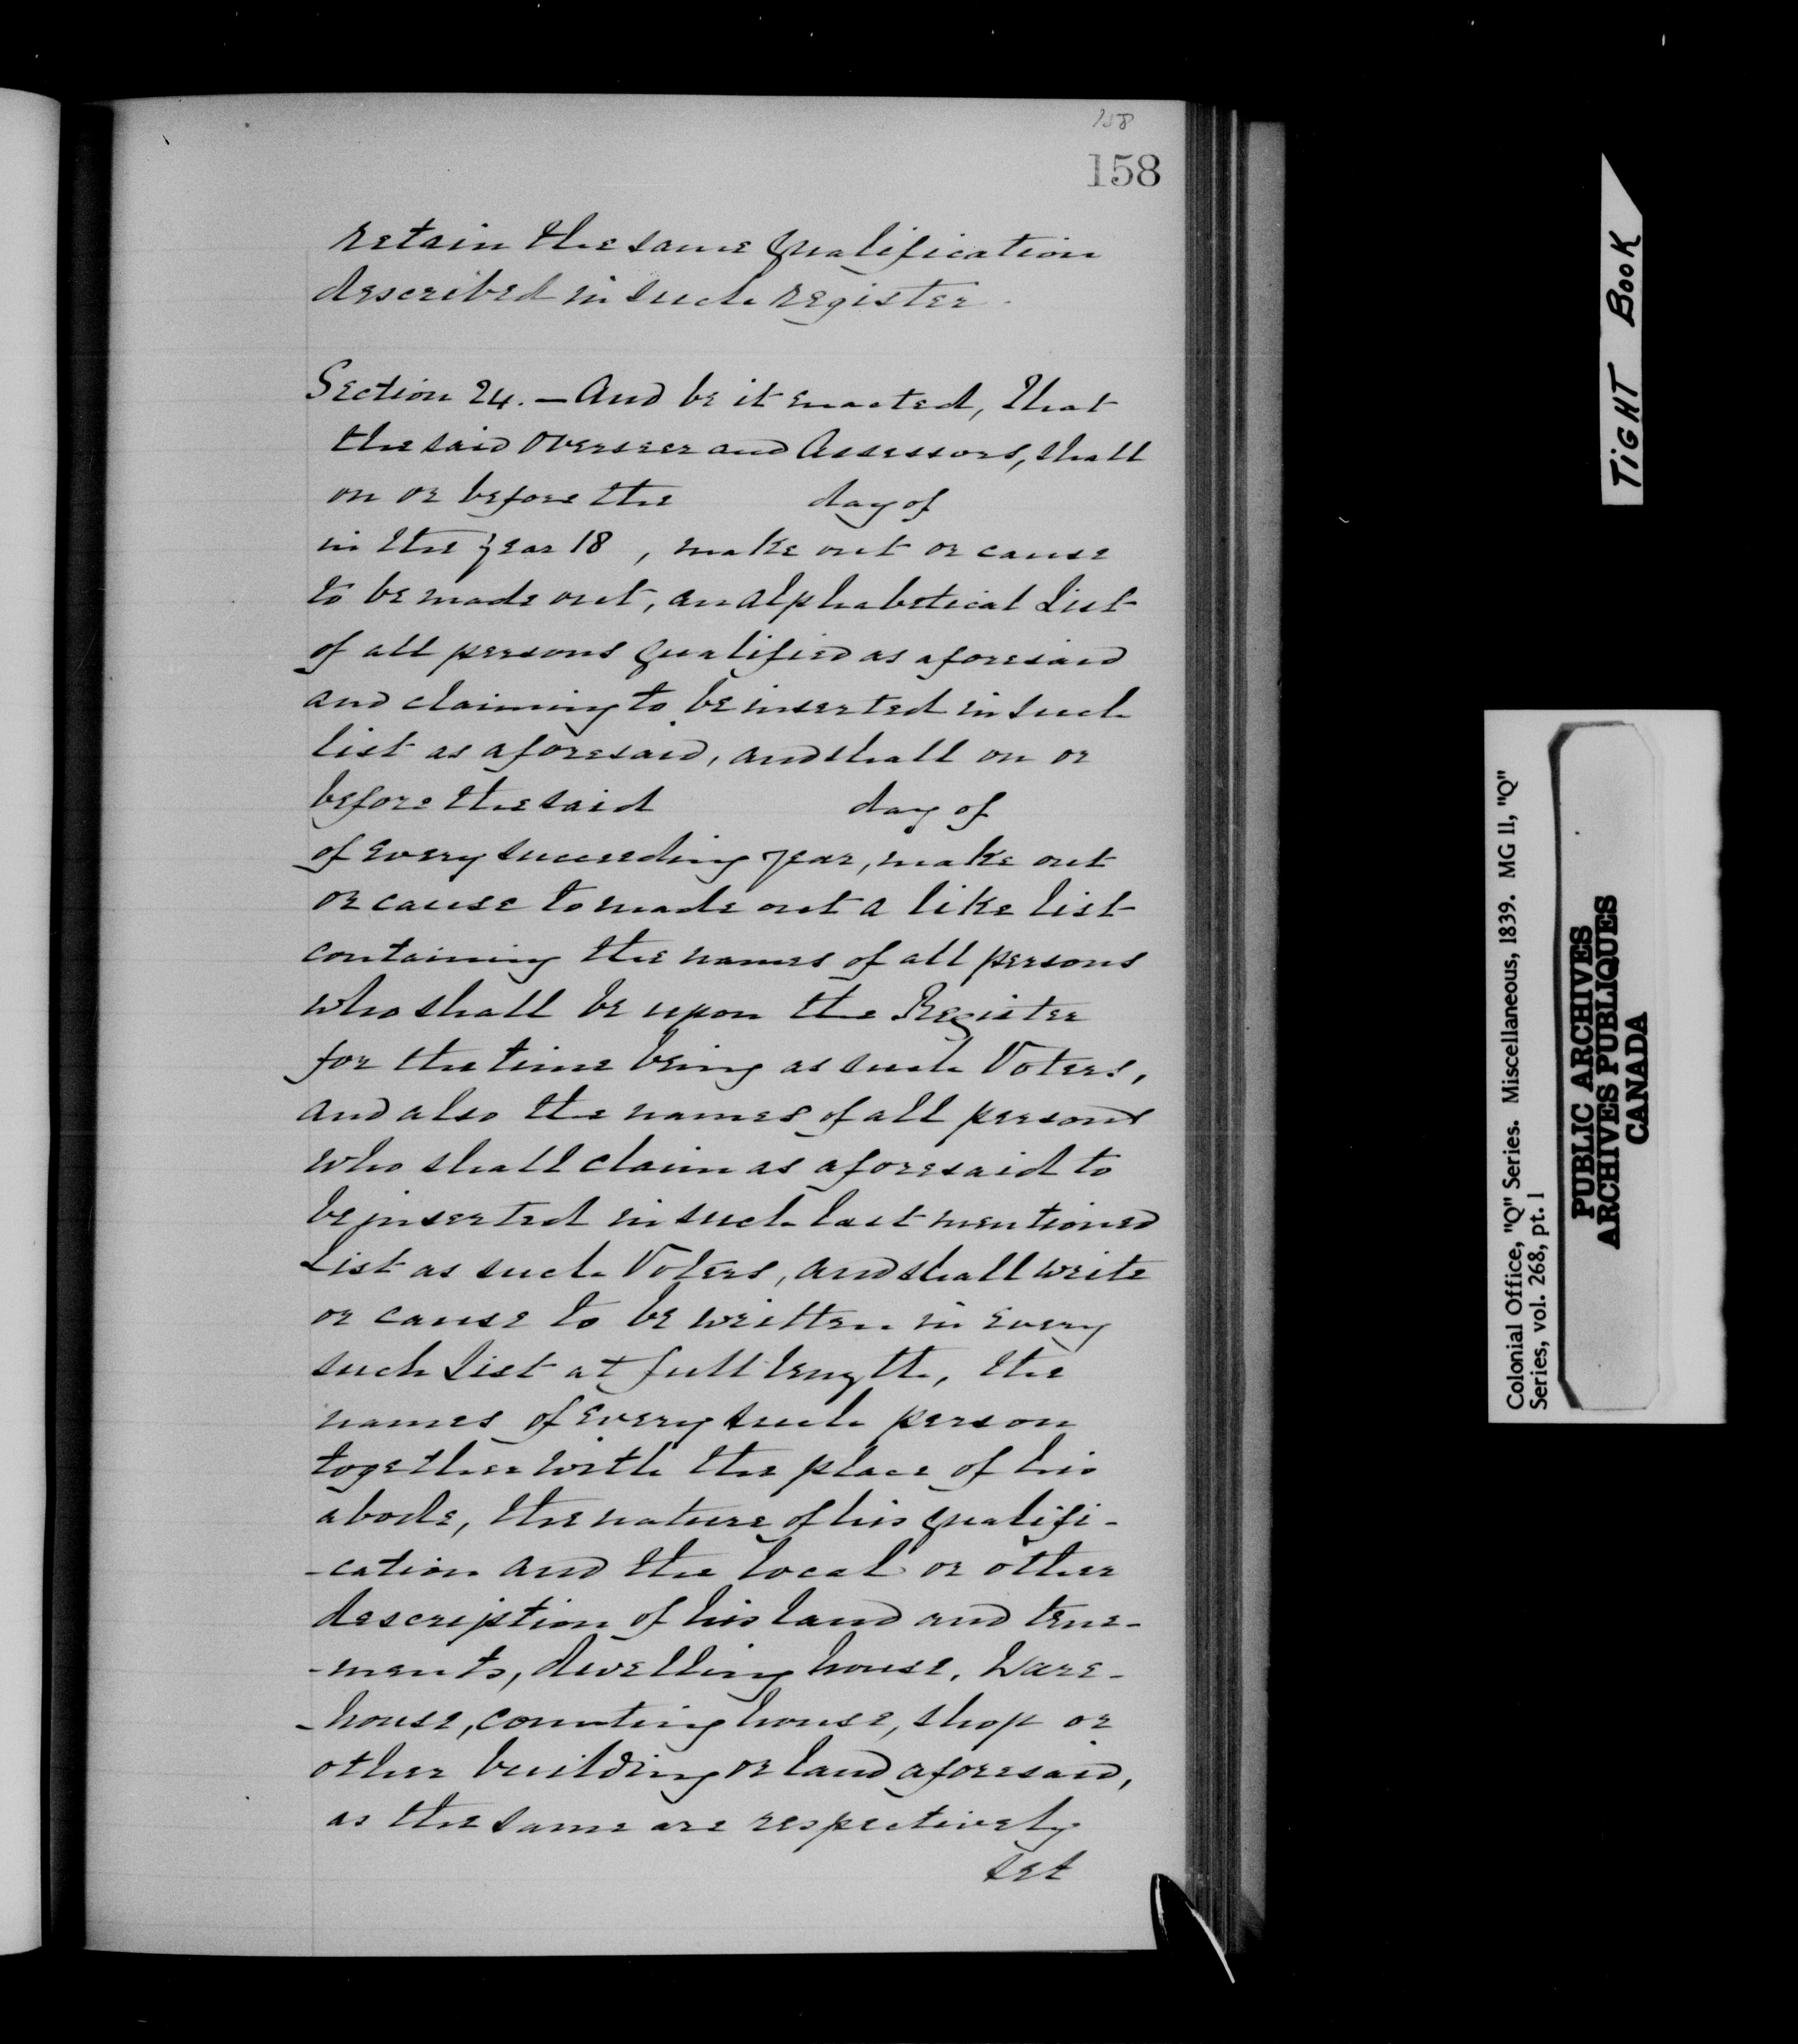 158
158
retain the same qualification
described in such register.
Section 24. — And be it enacted, That
the said Overseer and Assessors, shall
on or before the day of
in the year 18 , make out or cause
to be made out, an alphabetical List
of all persons qualified as aforesaid
and claiming to be inserted in such
list as aforesaid, and shall on or
before the said day of
of every succeeding year, make out
or cause to made out a like list
containing the names of all persons
who shall be upon the Register
for the time being as such Voters,
and also the names of all persons
who shall claim as aforesaid to
be inserted in such last mentioned
List as such Voters, and shall write
or cause to be written in every
such List at full length, the
names of every such person
together with the place of his
abode, the nature of his qualifi-
-cation and the local or other
description of his land and tene-
-ments, dwelling house, Ware-
-house, counting house, shop or
other building or land aforesaid,
as the same are respectively
set
TIGHT BOOK
Colonial Office, "Q" Series. Miscellaneous, 1839. MG 11, "Q"
Series, vol. 268, pt. 1
PUBLIC ARCHIVES
ARCHIVES PUBLIQUES
CANADA